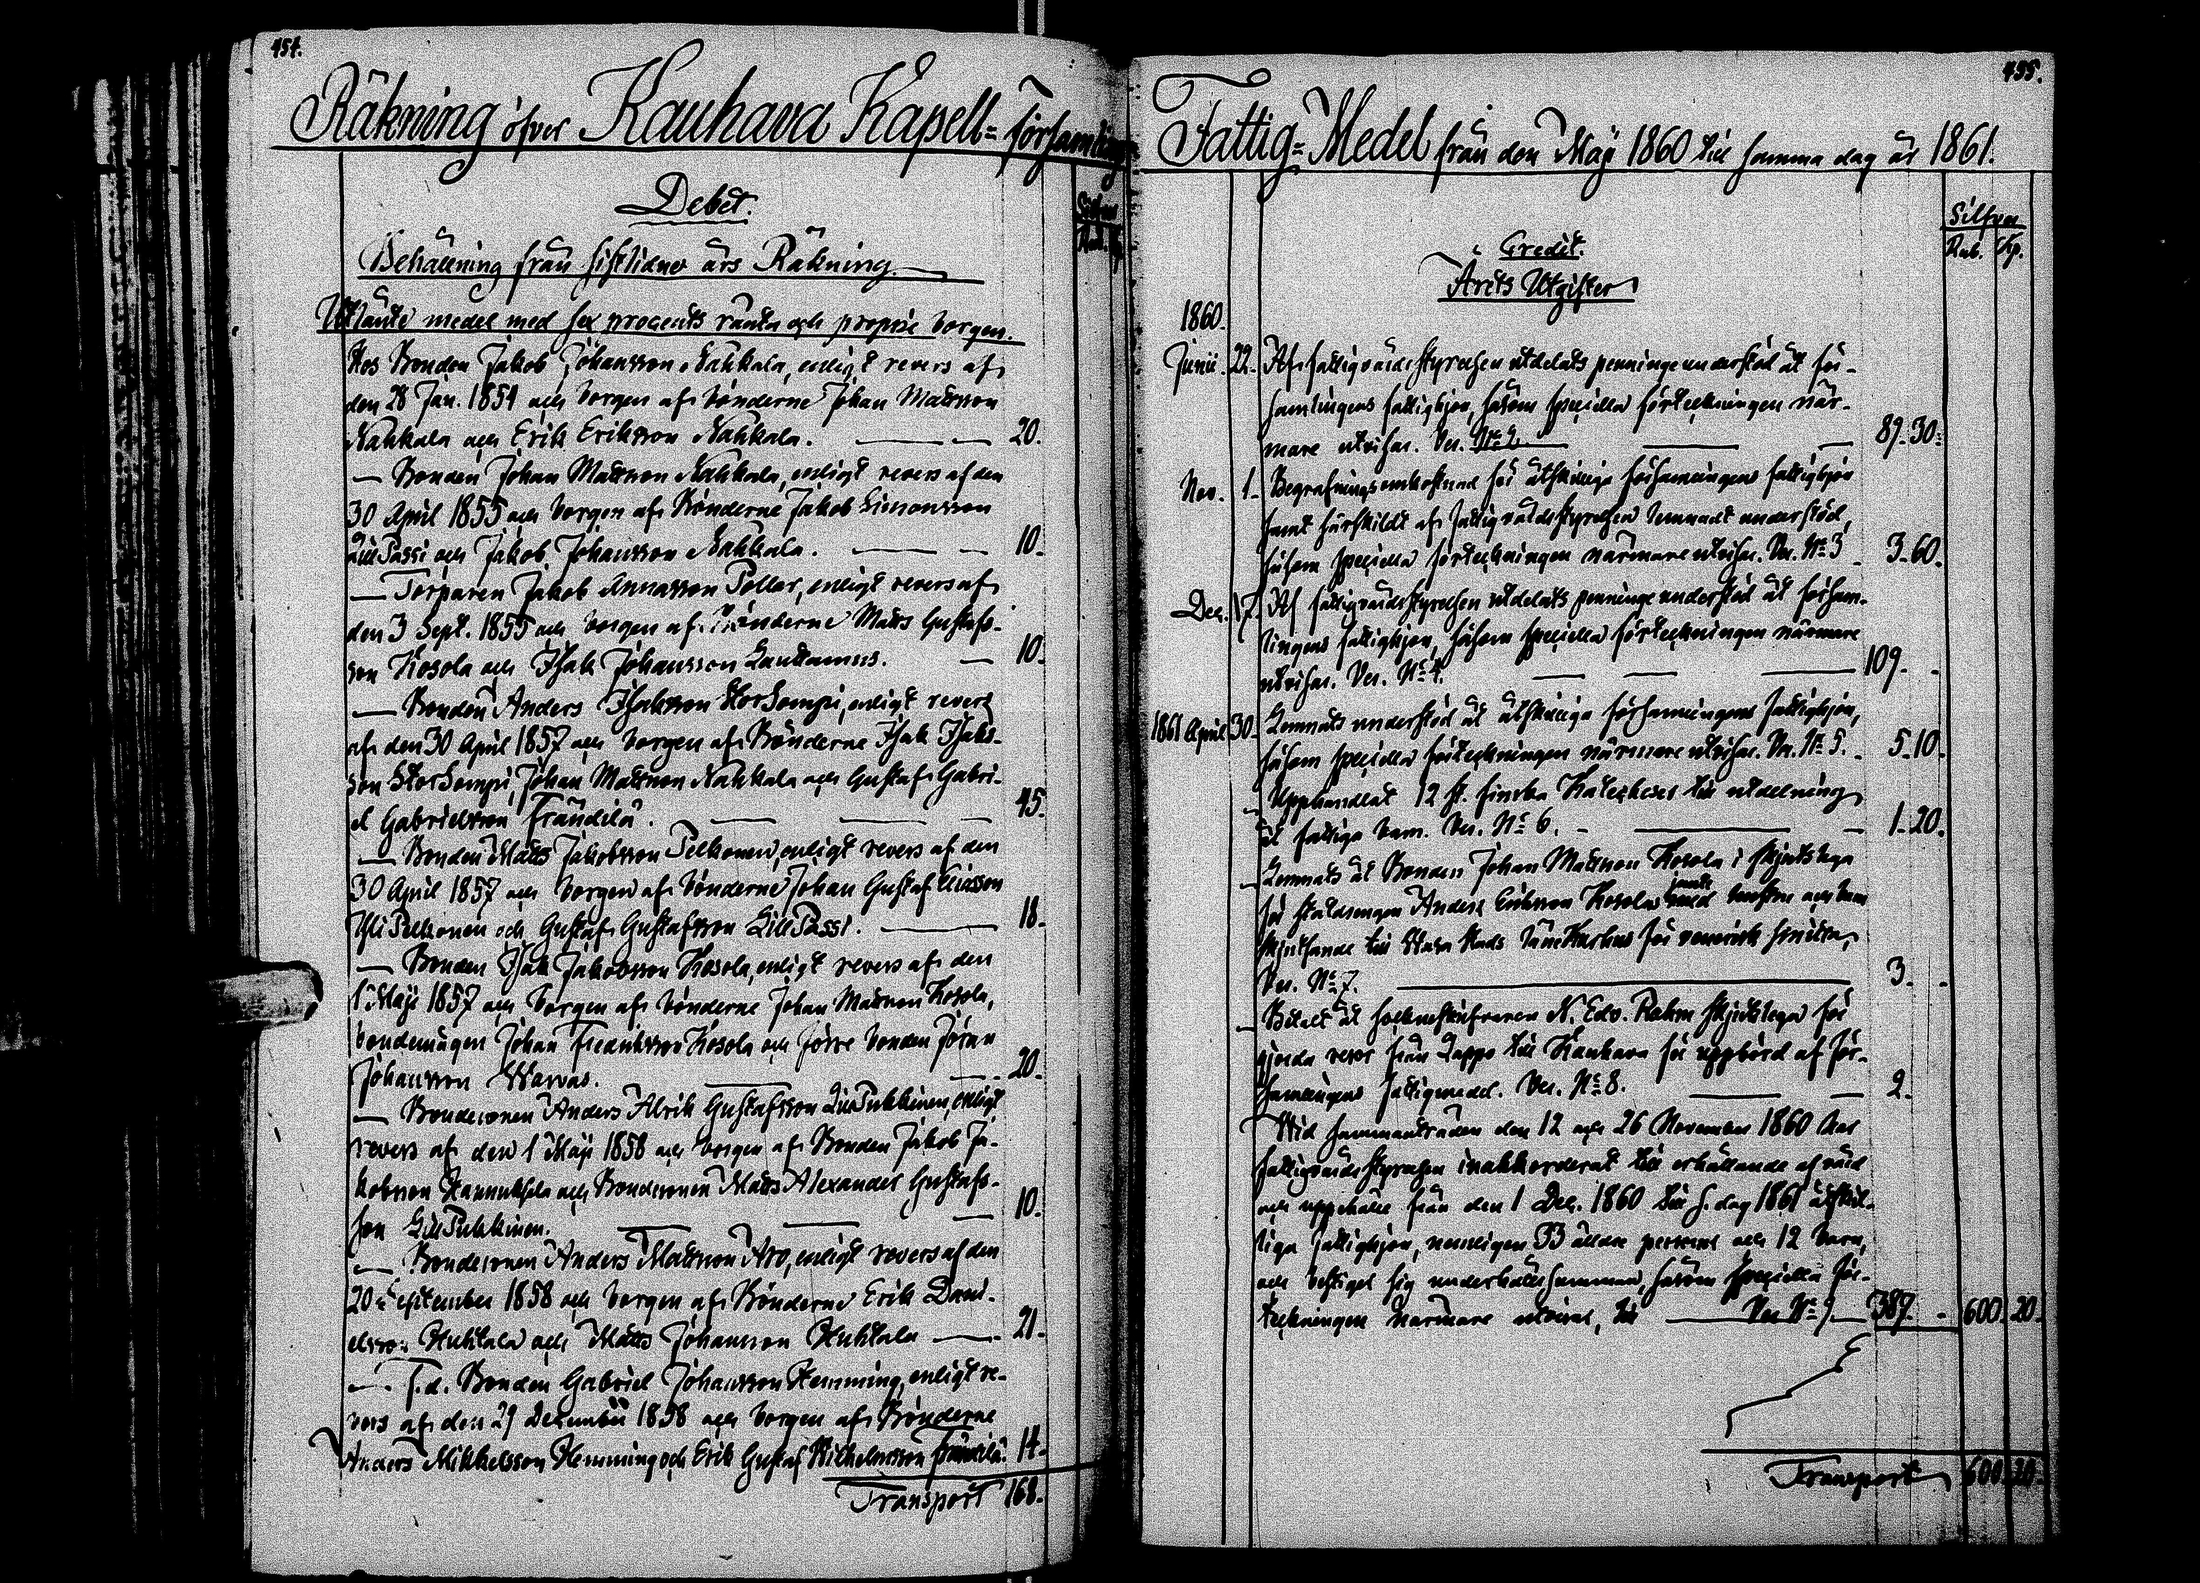 454.
Räkning öfver Kauhava Kapell=församlings
Debet.
Silfver
Rub. Kp.
Behållning från sistlidne års Räkning.
Utlånte medel med sex procents ränta och proprie borgen.
Hos Bonden Jakob Johansson Nahkala, enligt revers af
den 28 Jan. 1854 och borgen af bönderne Johan Mattsson
Nahkala och Erik Eriksson Nahkala. — 20.
— Bonden Johan Mattsson Nahkala, enligt revers af den
30 April 1855 och borgen af Bönderne Jakob Simonsson
LillPassi och Jakob Johansson Nahkala. — 10.
— Torparen Jakob Annasson Pollar, enligt revers af
den 3 Sept. 1855 och borgen af Bönderne Matts Gustafs-
son Kosola och Isak Johansson Lautamus. — 10.
— Bonden Anders Isaksson StorSompi, enligt revers
af den 30 April 1857 och borgen af Bönderne Isak Isaks-
son StorSompi, Johan Mattsson Nahkala och Gustaf Gabri-
el Gabrielsson Frändilä. — 45.
— Bonden Matts Jakobsson Pelkonen, enligt revers af den
30 April 1857 och borgen af bönderne Johan Gustaf Eliasson
YliPelkonen och Gustaf Gustafsson LillPassi. — 18.
— Bonden Isak Jakobsson Kosola, enligt revers af den
1 Maji 1857 och borgen af bönderne Johan Mattsson Kosola,
bondemågen Johan Fredriksson Kosola och förre bonden Jöran
Johansson Warvas. — 20.
— Bondesonen Anders Alrik Gustafsson LillPukkinen, enligt
revers af den 1 Maji 1858 och borgen af Bonden Jakob Ja-
kobsson Hannuksela och Bondesonen Matts Alexander Gustafs-
son LillPukkinen. — 10.
— Bondesonen Anders Mattsson Aro, enligt revers af den
20 September 1858 och borgen af Bönderne Erik Dani-
elsson Huhtala och Matts Johansson Huhtala — 21.
— F.d. Bonden Gabriel Johansson Hemming, enligt re-
vers af den 29 December 1858 och borgen af Bönderne
Anders Mikkelsson Hemming och Erik Gustaf Wilhelmsson Frändilä. 14.
Transport 168.
455.
Fattig=Medel från den Maji 1860 till samma dag år 1861.
Silfver
Rub. Kp.
Credit.
Årets Utgifter
1860.
Junii. 22. Af fattigvårdsstyrelsen utdelats penningeunderstöd åt för-
samlingens fattighjon, såsom speciella förteckningen när-
mare utvisar. Ver. No 2. — 89. 30.
Nov. 1. Begrafningsomkostnad för åtskillige församlingens fattighjon
samt särskildt af fattigvårdsstyrelsen lemnadt understöd,
såsom speciella förteckningen närmare utvisar. Ver. No 3 3. 60.
Dec. 17. Af fattigvårdsstyrelsen utdelats penninge understöd åt försam-
lingens fattighjon, såsom speciella förteckningen närmare
utvisar. Ver. No 4. — 109. -
1861 April 30. Lemnats understöd åt åtskillige församlingens fattighjon,
såsom speciella förteckningen närmare utvisar. Ver. No 5. 5. 10.
- Upphandlat 12 st. finska Katekeser till utdelning
åt fattiga barn. Ver. No 6. — 1. 20.
- Lemnats åt Bonden Johan Mattsson Kosola i skjutslega
för Anders Eriksson Kosola jemte hustru och barn
skjutsande till Wasa stads länslazaret för venerisk smitta,
Ver. No 7. — 3. -
- Betalt åt sockneskrifvaren N. Edv. Rahm skjutslega för
gjorda resor från Lappo till Kauhava för uppbörd af för-
samlingens fattigmedel. Ver. No 8. — 2.
Wid sammanträden den 12 och 26 November 1860 har
fattigvårdsstyrelsen inackorderat till erhållande af vård
och uppehälle från den 1 Dec. 1860 till s. dag 1861 åtskil-
lige fattighjon, nemligen 33 äldre personer och 12 barn,
och bestiger sig underhållssumman, såsom speciella för-
teckningen närmare utvisar, till — Ver. No 9. — 387. - 600. 20.
Transport 600 20.